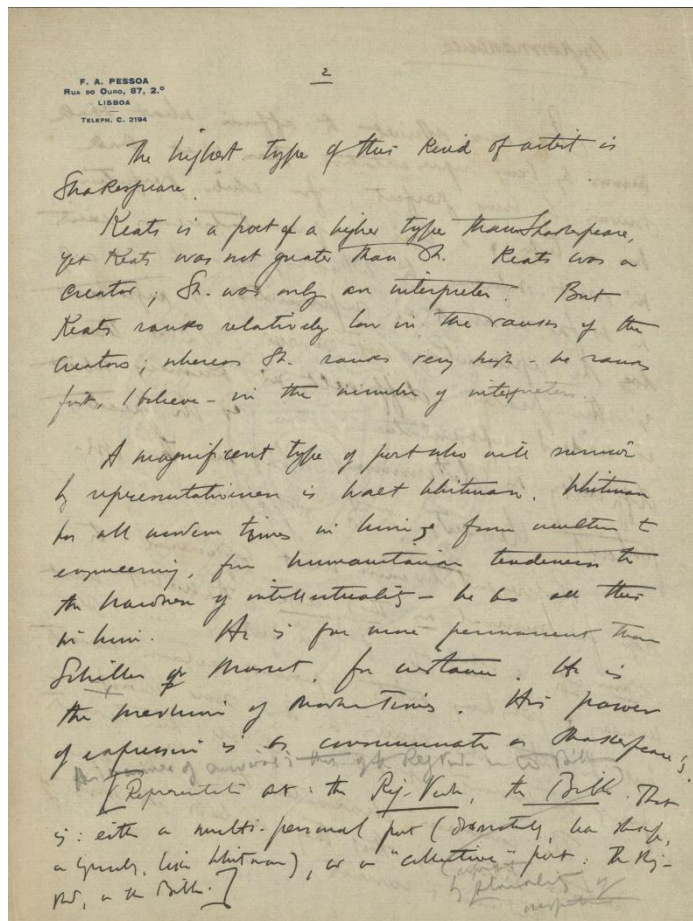 2
F. A. PESSOA
RUA DO OURO, 87, 2.º
LISBOA
TELEPH. C. 2194
The highest type of this kind of artist is
Shakespeare.
Keats is a poet of a higher type than Shakespeare,
yet Keats was not greater than Sh. Keats was a
creator; Sh. was only an interpreter. But
Keats ranks relatively low in the ranks of the
creators; whereas Sh. ranks very high - he ranks
first, I believe - in the number of interpreters.
A magnificent type of poet who will survive
by representativeness is Walt Whitman. Whitman
has all modern times in him, from occultism to
engineering, from humanitarian tenderness to
the hardness of intellectuality - he has all this
in him. He is far more permanent than
Schiller or Musset, for instance. He is
the medium of Modern Times. His power
of expression is as consummate as Shakespeare's
[Representative art: the Rig-Veda, the Bible. That
is: either a multi-personal poet (dramatically, like Shakesp.,
or lyrically, like Whitman), or a "collective" poet: the Rig-
Ved, or the Bible.]
by plurality of